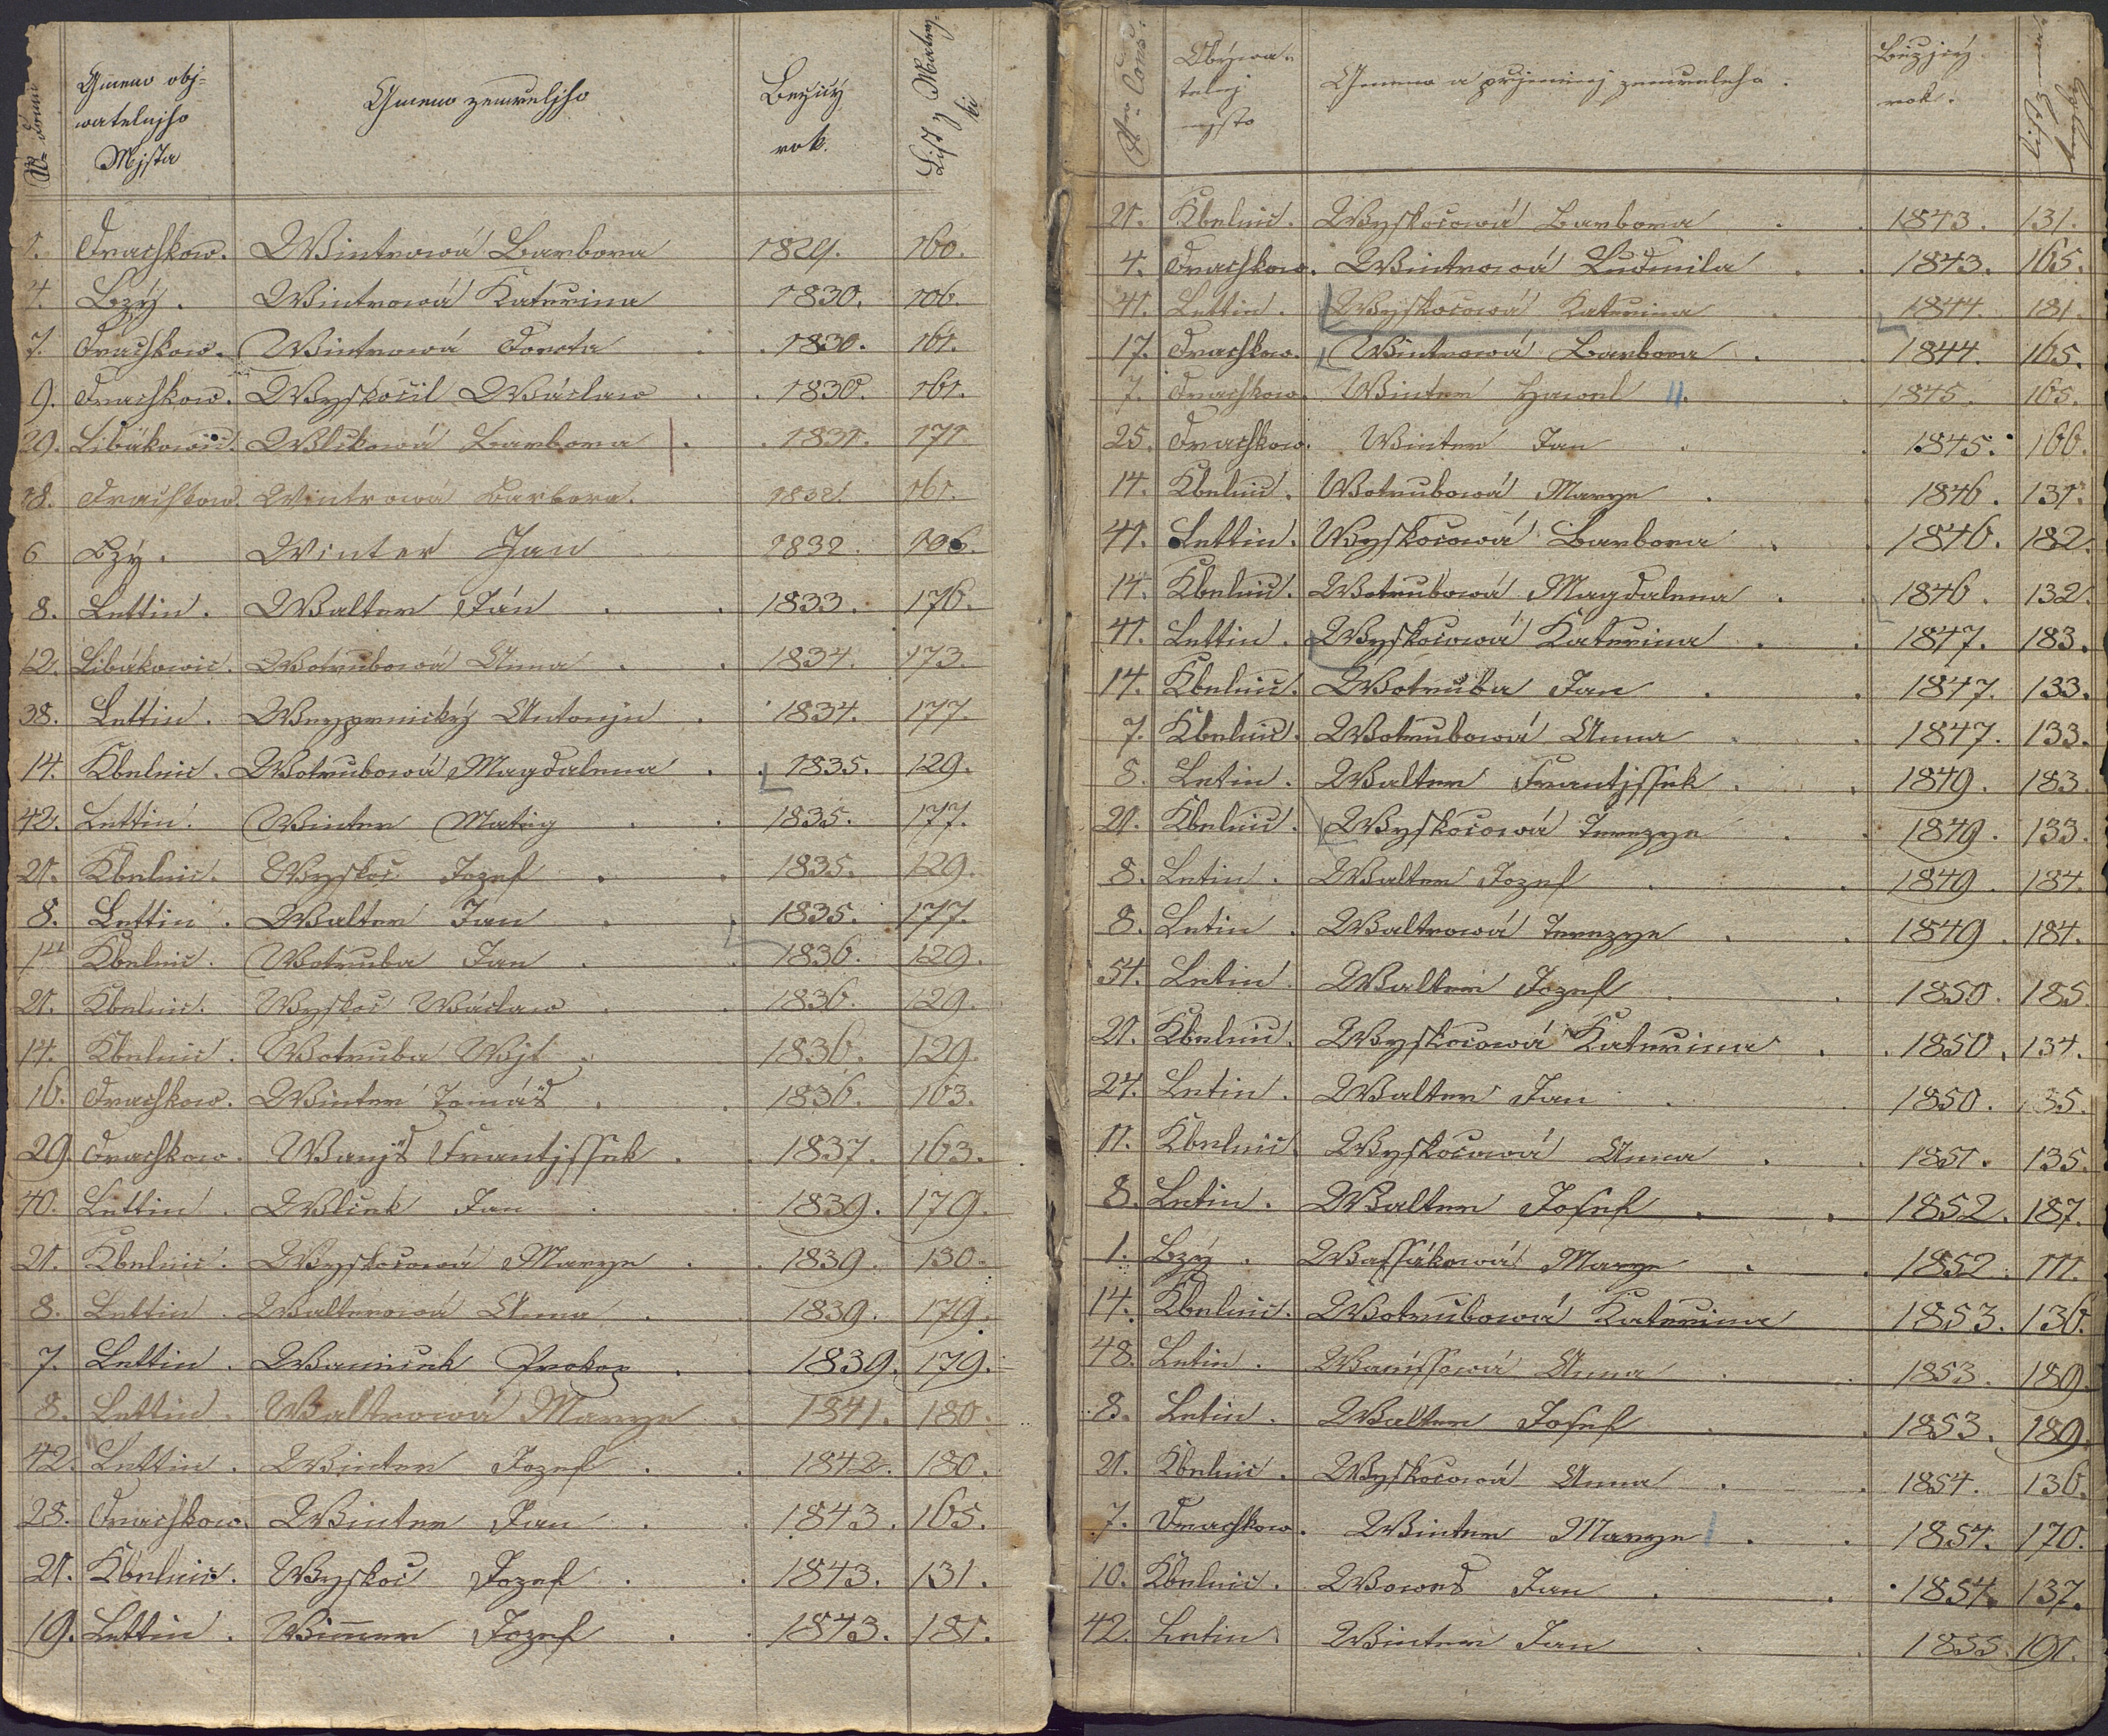 Gmeno obj=
watelnjho
Mjsta
Gmeno zemreljho
Bezicy
rok.
List z Matry
ki
1. Drachkow. Wintrowá Barbora 1829. 160.
4. Bzý. Wintrowá Katerina 1830. 106.
7. Drachkow. Wintrowá Dorota 1830. 161.
9. Drachkow. Wyskočil Wáclaw 1830. 161.
29. Libákowic. Wlčkowá Barbora 1831. 171
18. Drachkow. Wintrowá Barbora. 1832. 161.
6 Bzý. Winter Jan 1832. 106.
8. Lettin. Walter Ján 1833. 176.
12. Libákowic. Wotrubowá Anna 1834. 173.
38. Lettin. Antonjn 1834. 177.
14. Kbelnic. Wotrubowá Magdalena 1835. 129.
42. Lettin. Winter Matěg 1835. 177.
21. Kbelnic. Wyskoč Jozef 1835. 129.
8. Lettin. Walter Jan 1835. 177.
14 Kbelnic. Wotruba Jan 1836. 129.
21. Kbelnic. Wyskoč Wáclaw 1836. 129.
14. Kbelnic. Wotruba Wjt 1836. 129.
16. Drachkow. Winter Tomáš 1836. 163.
29. Drachkow. Wanjš Frantjssek 1837. 163.
40. Lettin. Wlček Jan 1839. 179.
21. Kbelnic. Wyskočowá Marye 1839. 130.
8. Lettin. Walterowá Anna 1839. 179.
7. Lettin. Waniček Prokop 1839. 179.
8. Lettin. Waltrowá Marye 1841. 180.
42. Lettin. Winter Jozef 1842. 180.
28. Drachkow. Winter Jan 1843. 165.
21. Kbelnic. Wyskoč Jozef 1843. 131.
19. Lettin. Wim̅er Jozef 1843. 181.
Nro Cons.
Obýwa=
telnj
mjsto
Gmeno a prjmenj zemreleho.
Bězjcý
rok.
21. Kbelnic. Wyskočowá Barbora 1843. 131.
4. Drachkow. Wintrowá Ludmila 1843. 165.
41. Lettin. Wyskočowá Katerina 1844. 181.
17. Drachkow. Wintrowá Barbora 1844. 165.
7. Drachkow. Winter Hawel 1845. 165.
25. Drachkow. Winter Jan 1845. 166.
14. Kbelnic. Wotrubowá Marye 1846. 131.
41. Lettin. Wyskočowá Barbora 1846. 182.
14. Kbelnic. Wotrubowá Magdalena 1846. 132.
41. Lettin. Wyskočowá Katerina 1847. 183.
14. Kbelnic. Wotruba Jan 1847. 133.
7. Kbelnic. Wotrubowá Anna 1847. 133.
8. Letin. Walter Frantjssek 1849. 183.
21. Kbelnic. Wyskočowá Terezye 1849. 133.
8. Letin. Walter Jozef 1849. 184.
8. Letin. Waltrowá Terezye 1849. 184.
54. Letin. Walter Jozef 1850. 185.
21. Kbelnic. Wyskočowá Katerina 1850. 134.
24. Letin. Walter Jan 1850. 135.
11. Kbelnic. Wyskočowá Anna 1851. 135.
8. Letin. Walter Josef 1852. 187.
1. Bzý. Wassákowá Marye 1852. 111.
14. Kbelnic. Wotrubowá Katerina 1853. 136.
48. Letin. Wanissowá Anna 1853. 189.
8. Letin. Walter Josef 1853. 189.
21. Kbelnic. Wyskočowá Anna 1854. 136.
7. Drachkow. Winter Marye 1854. 170.
10. Kbelnic. Wowes Jan 1854. 137.
42. Letin. Winter Jan 1855. 191.